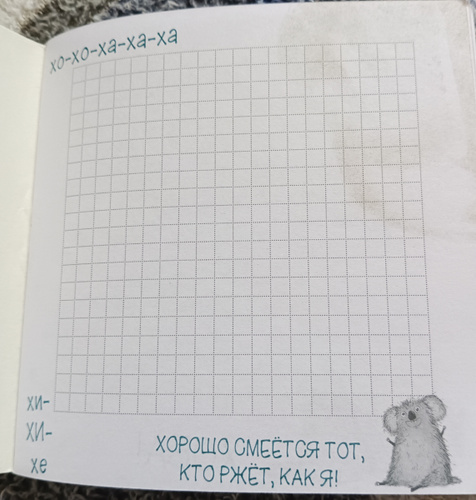 хо-хо-ха-ха-ха
хи-
хи-
хе
ХОРОШО СМЕЁТСЯ ТОТ,
КТО РЖЁТ, КАК Я!